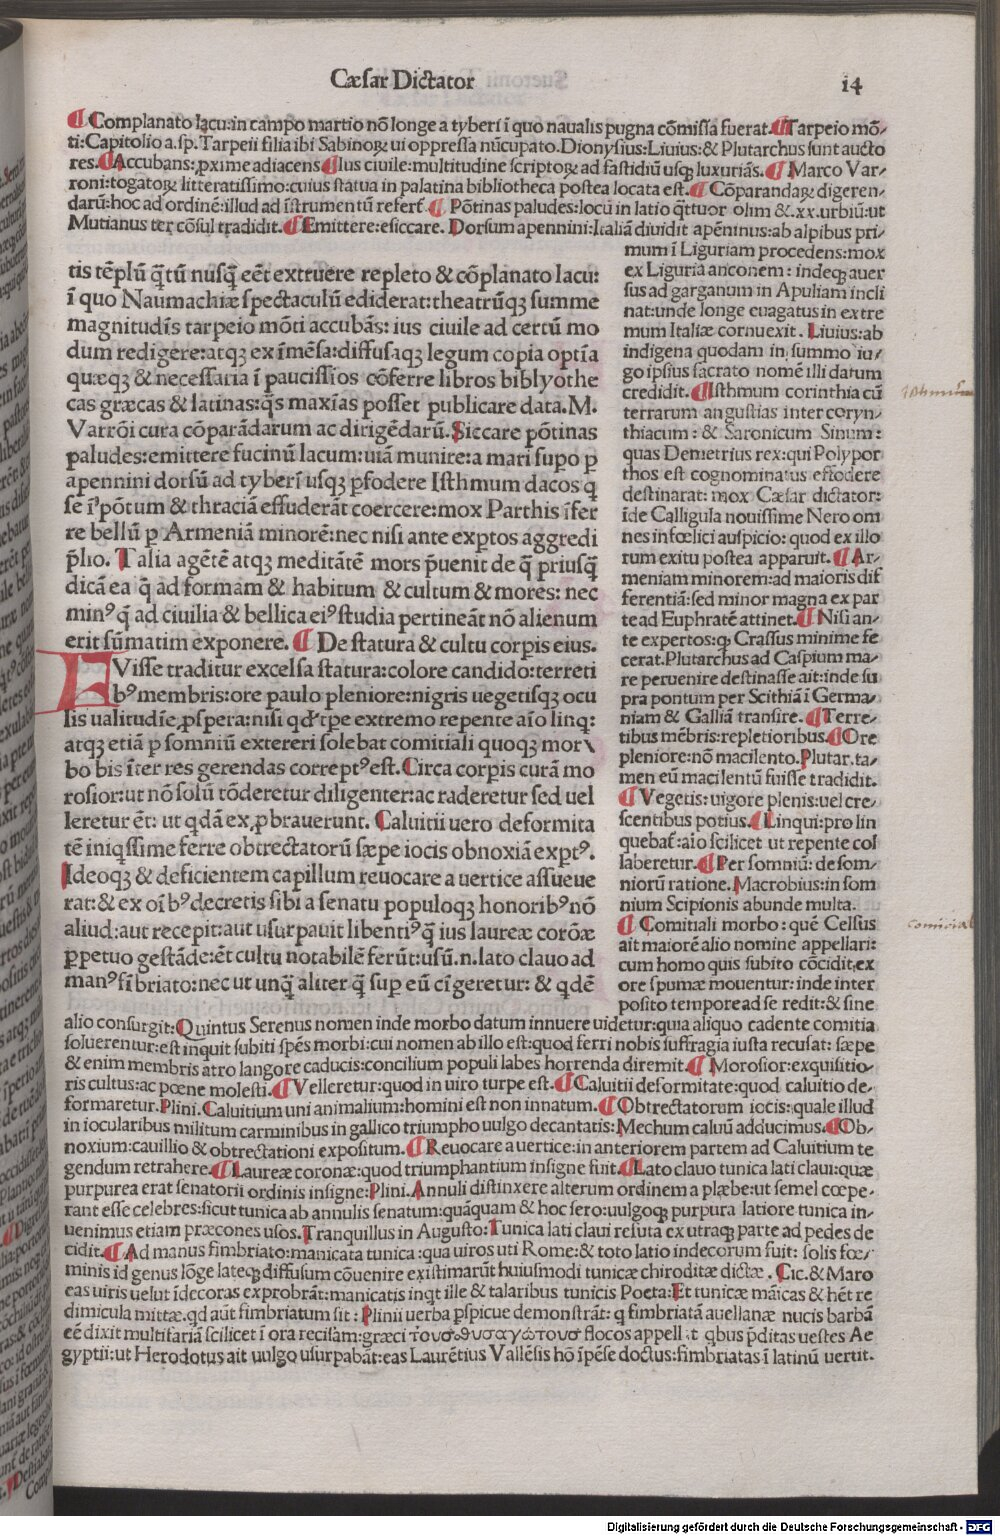 Cæsar Dictator 14
Complanato lacu:in campo martio nõ longe a tyberi ĩ quo naualis pugna cõmissa fuerat. Tarpeio mõ⸗
ti:Capitolio a.sp.Tarpeii filia ibi Sabinoꝝ ui oppressa nũcupato.Dionysius:Liuius:& Plutarchus sunt aucto
res. Accubans:ꝓxime adiacens Ius ciuile:multitudine scriptoꝝ ad fastidiũ usqꝫ luxuriãs. Marco Var⸗
roni:togatoꝝ litteratissimo:cuius statua in palatina bibliotheca postea locata est. Cõparandaꝝ digeren⸗
darũ:hoc ad ordinẽ:illud ad ĩstrumentũ refert. Põtinas paludes:locũ in latio q̃ttuor olim &.xx.urbiũ:ut
Mutianus ter cõsul tradidit. Emittere:esiccare. Dorsum apennini:Italiã diuidit apẽninus:ab alpibus pri⸗
tis tẽplũ q̃tũ nusq̃ eẽt extruere repleto & cõplanato lacu:
ĩ quo Naumachiæ spectaculũ ediderat:theatrũqꝫ summe
magnitudĩs tarpeio mõti accubãs: ius ciuile ad certũ mo
dum redigere:atqꝫ ex ĩmẽsa:diffusaqꝫ legum copia optĩa
quæqꝫ & necessaria ĩ paucissĩos cõferre libros biblyothe
cas græcas & latinas:q̃s maxĩas posset publicare data.M.
Varrõi cura cõparãdarum ac dirigẽdarũ. Siccare põtinas
paludes:emittere fucinũ lacum:uiã munire:a mari supo ꝑ
apennini dorsũ ad tyberĩ usqꝫ ꝑfodere Isthmum dacos q̃
se ĩ põtum & thraciã effuderãt coercere:mox Parthis ĩfer
re bellũ ꝑ Armeniã minorẽ:nec nisi ante exꝑtos aggredi
p̃lio. Talia agẽtẽ atqꝫ meditãtẽ mors p̃uenit de q̃ priusq̃
dicã ea q̃ ad formam & habitum & cultum & mores: nec
minꝰ q̃ ad ciuilia & bellica eiꝰ studia pertineãt nõ alienum
erit sũmatim exponere. De statura & cultu corꝑis eius.
FVisse traditur excelsa statura:colore candido:terreti
bꝰ membris:ore paulo pleniore:nigris uegetisqꝫ ocu
lis ualitudĩe ꝓspera:nisi qď tꝑe extremo repente aĩo linq̃:
atqꝫ etiã ꝑ somniũ extereri solebat comitiali quoqꝫ mor
bo bis ĩter res gerendas correptꝰ est. Circa corꝑis curã mo
rosior:ut nõ solũ tõderetur diligenter:ac raderetur sed uel
leretur ẽt: ut q̃dã exꝓbrauerunt. Caluitii uero deformita
tẽ iniq̃ssime ferre obtrectatorũ sæpe iocis obnoxiã exꝑtꝰ.
Ideoqꝫ & deficientem capillum reuocare a uertice assueue
rat:& ex oĩbꝰ decretis sibi a senatu populoqꝫ honoribꝰ nõ
aliud:aut recepit:aut usurpauit libentiꝰ q̃ ius laureæ corõæ
ꝑpetuo gestãde:ẽt cultu notabilẽ ferũt:usũ.n.lato clauo ad
manꝰ fĩbriato:nec ut unq̃ aliter q̃ sup eũ cĩgeretur: & q̃dẽ
mum ĩ Liguriam procedens:mox
ex Liguria anconem: indeqꝫ auer
sus ad garganum in Apuliam incli
nat:unde longe euagatus in extre
mum Italiæ cornu exit. Liuius:ab
indigena quodam in summo iu⸗
go ipsius sacrato nomẽ illi datum
credidit. Isthmum corinthia cũ
terrarum angustias inter coryn⸗
thiacum: & Saronicum Sinum:
quas Demetrius rex:qui Polypor
thos est cognominatus effodere
destinarat: mox Cæsar dictator:
ĩde Calligula nouissime Nero om
nes infœlici auspicio: quod ex illo
rum exitu postea apparuit. Ar⸗
meniam minorem:ad maioris dif
ferentiã:sed minor magna ex par
te ad Euphratẽ attinet. Nisi an⸗
te expertos:qꝫ Crassus minime fe
cerat.Plutarchus ad Caspium ma⸗
re peruenire destinasse ait:inde su
pra pontum per Scithiã ĩ Germa⸗
niam & Galliã transire. Terre⸗
tibus mẽbris:repletioribus. Ore
pleniore:nõ macilento.Plutar.ta⸗
men eũ macilentũ fuisse tradidit.
Vegetis:uigore plenis:uel cre⸗
scentibus potius. Linqui:pro lin
quebat̃:aĩo scilicet ut repente col
laberetur. Per somniũ:de som⸗
niorũ ratione. Macrobius:in som
nium Scipionis abunde multa.
Comitiali morbo: quẽ Celsus
ait maiorẽ alio nomine appellari:
cum homo quis subito cõcidit,ex
ore spumæ mouentur: inde inter
posito tempore ad se redit:& sine
alio consurgit:Quintus Serenus nomen inde morbo datum innuere uidetur:quia aliquo cadente comitia
soluerentur:est inquit subiti spẽs morbi:cui nomen ab illo est:quod ferri nobis suffragia iusta recusat: sæpe
& enim membris atro langore caducis:concilium populi labes horrenda diremit. Morosior:exquisitio⸗
ris cultus:ac pœne molesti. Velleretur:quod in uiro turpe est. Caluitii deformitate:quod caluitio de⸗
formaretur.Plini. Caluitium uni animalium:homini est non innatum. Obtrectatorum iocis:quale illud
in iocularibus militum carminibus in gallico triumpho uulgo decantatis:Mechum caluũ adducimus. Ob⸗
noxium:cauillio & obtrectationi expositum. Reuocare a uertice:in anteriorem partem ad Caluitium te
gendum retrahere. Laureæ coronæ:quod triumphantium insigne fuit. Lato clauo tunica lati claui:quæ
purpurea erat senatorii ordinis insigne:Plini.Annuli distinxere alterum ordinem a plæbe:ut semel cœpe⸗
rant esse celebres:sicut tunica ab annulis senatum:quãquam & hoc sero:uulgoqꝫ purpura latiore tunica in⸗
uenimus etiam præcones usos.Tranquillus in Augusto:Tunica lati claui resuta ex utraqꝫ parte ad pedes de
cidit. Ad manus fimbriato:manicata tunica:qua uiros uti Rome:& toto latio indecorum fuit: solis fœ⸗
minis id genus lõge lateqꝫ diffusum cõuenire existimarũt huiusmodi tunicæ chiroditæ dictæ. Cic.& Maro
eas uiris uelut ĩdecoras exprobrãt:manicatis inq̃t ille & talaribus tunicis Poeta:Et tunicæ mãicas & hẽt re
dimicula mittæ.qd aũt fimbriatum sit : Plinii uerba ꝑspicue demonstrãt: q̃ fimbriatã auellanæ nucis barbã
eẽ dixit multifariã scilicet ĩ ora recisam:græci τουσθυσαγωτουσ flocos appellãt qbus p̃ditas uestes Ae
gyptii:ut Herodotus ait uulgo usurpabãt:eas Laurẽtius Vallẽsis hõ ĩpẽse doctus:fimbriatas ĩ latinũ uertit.
Digitalisierung gefördert durch die Deutsche Forschungsgemeinschaft - DFG